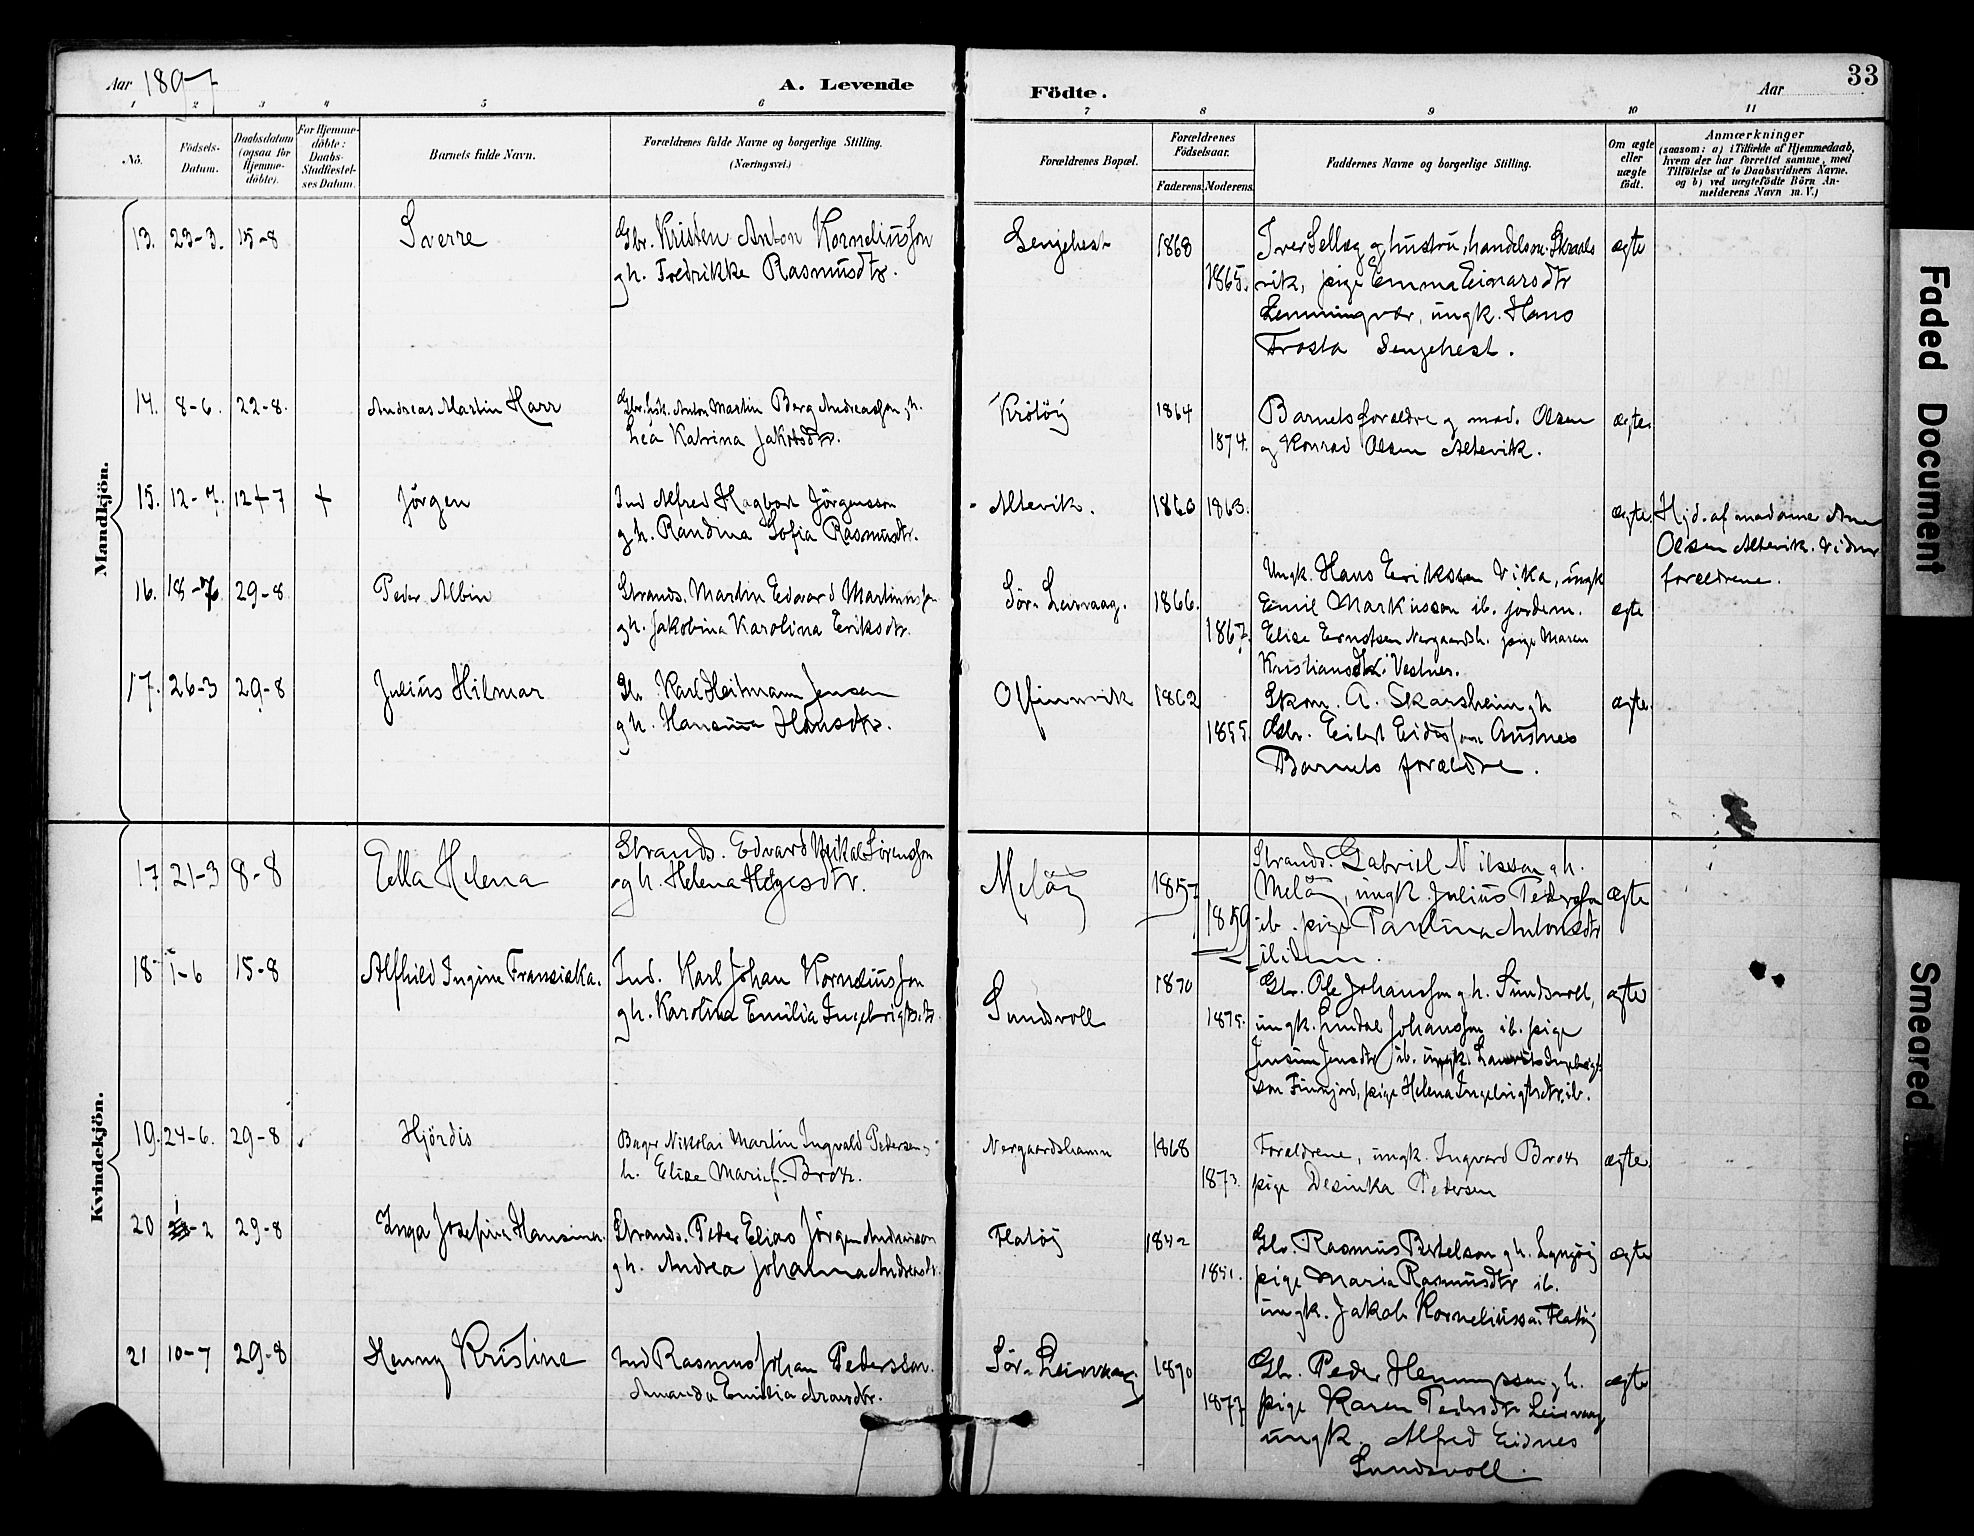 33
Aar 1897
A. Levende
Födte.
Aar
1 2 3 4 5 6 7 8 9 10 11
No.
Födsels-Datum.
Daabsdatum (ogsaa for Hjemme-döbte).
For Hjemme-döbte: Daabs-Stadfæstel-ses Datum.
Barnets fulde Navn.
Forældrenes fulde Navne og borgerlige Stilling. (Næringsvei.)
Forældrenes Bopæl.
Forældrenes Födselsaar.
Faderens. Moderens.
Faddernes Navne og borgerlige Stilling.
Om ægte eller uægte födt.
Anmærkninger
(saasom: a) i Tilfælde af Hjemmedaab,
hvem der har forrettet samme, med
Tilföielse af to Daabsvidners Navne.
og b) ved uægtefödte Börn An-
melderens Navn m. V.)
Mandkjön.
13. 23-3. 15-8 Sverre
Gbr. Kristen Anton Korneliussøn
gh. Fredrikke Rasmusdtr.
Senjehest 1868 1865.
Iver Selleg og hustru, handelsm.
vik, pige Emma Einarsdtr
Lemmingvær, ungk. Hans
Trosta Senjehest.
ægte
14. 8-6. 22-8. Andreas Martin Harr
Anton Martin Berg Andreassøn gh.
Lea Katrina Jakobsdtr.
Krötöy 1864 1874.
Barnets forældre og mad. Olsen
og Konrad Olsen Altevik.
ægte.
15. 12-7. 12+7 + Jörgen
Ind Alfred Hagbart Jörgensson
gh. Randina Sofia Rasmusdtr.
Altevik. 1860 1863.
ægte.
Hjd. af madame Ane
Olsen Altevik. Vidner
forældrene.
16. 18-7 29-8 Peder Albin
Strands. Martin Edvard Martinussøn
gh. Jakobina Karolina Eriksdtr.
Sör-Leirvaag. 1866. 1867.
Ungk. Hans Eriksson Vika, ungk
Emil Markusson ib. jordem.
Elise Erntsen Nergaardsh. pige Maren
Kristiansdtr. Vestnes.
ægte
17. 26-3 29-8 Julius Hilmar
Gbr. Karl Heitmann Jensen
gh. Hansina Hansdtr.
Offinnvik 1862 1855.
Skom. A. Skarsheim gh
Gbr. Eilert Eidissøn Austnes
Barnets forældre.
ægte.
Kvindekjön.
17 21-3 8-8 Ella Helena
Strands. Edvard Mikal Sörenssøn
gh. Helena Helgesdtr.
Melöy 1857 1859
Strands. Gabriel Nilsson gh.
Melöy, ungk. Julius Pederssøn
ib. pige Paulina Antonsdtr
ibidem.
ægte
18 1-6 15-8 Alfhild Ingine Fransiska.
Ind. Karl Johan Korneliussøn
gh. Karolina Emilia Ingebrigtsdtr.
Sundsvoll 1870 1875.
Gbr. Ole Johanssøn gh. Sundsvoll,
ungk. Johanssøn ib. pige
Jensine Jensdtr ib. ungk. Laurits Ingebrigt-
son Finnjord, pige Helena Ingebrigtsdtr. ib.
ægte
19. 24-6. 29-8 Hjördis
Bager Nikolai Martin Ingvald Pedersen
h. Elise Marie f. Brox.
Nergaardshamn 1868 1873.
Forældrene, ungk. Ingvard Brox
pige Desinka Pedersen
ægte.
20 1-2 29-8 Inga Josefine Hansina.
Strands. Peder Elias Jörgen Andreasson
gh. Andrea Johanna Andreasdtr.
Flatöy 1842 1851.
Gbr. Rasmus Bertelson gh. Lyngöy
pige Maria Rasmusdtr ib.
ungk. Jakob Korneliussøn Flatöy
ægte
21 10-7 29-8 Henny Kristine
Ind Rasmus Johan Pedersson.
Amanda Emilia Aronsdtr.
Sör-Leirvaag 1870 1877
Gbr. Peder Henningsson gh.
pige Karen Pedersdtr Leirvaag
ungk. Alfred Eidnes
Sundsvoll.
ægte
Faded Document
Smeared